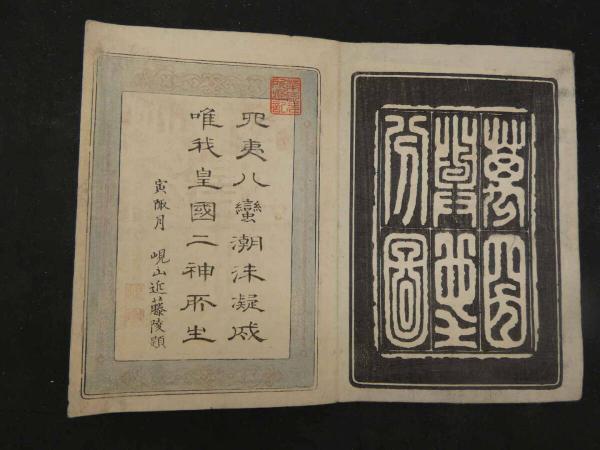 萬國
輿地
分圖
四夷八蠻潮沫凝成
唯我皇國二神所生
寅陬月 峴山近藤陵題